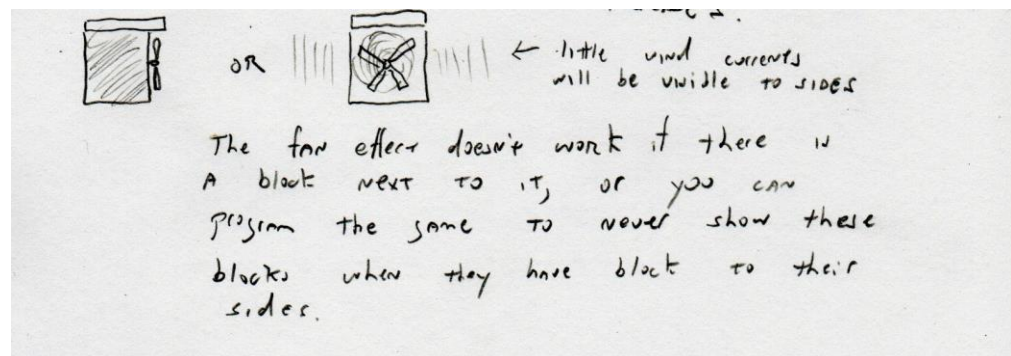 OR
← little wind currents
will be visible to sides
The fan effect doesn't work if there is
A block next to it, or you can
program the game to never show these
blocks when they have block to their
sides.